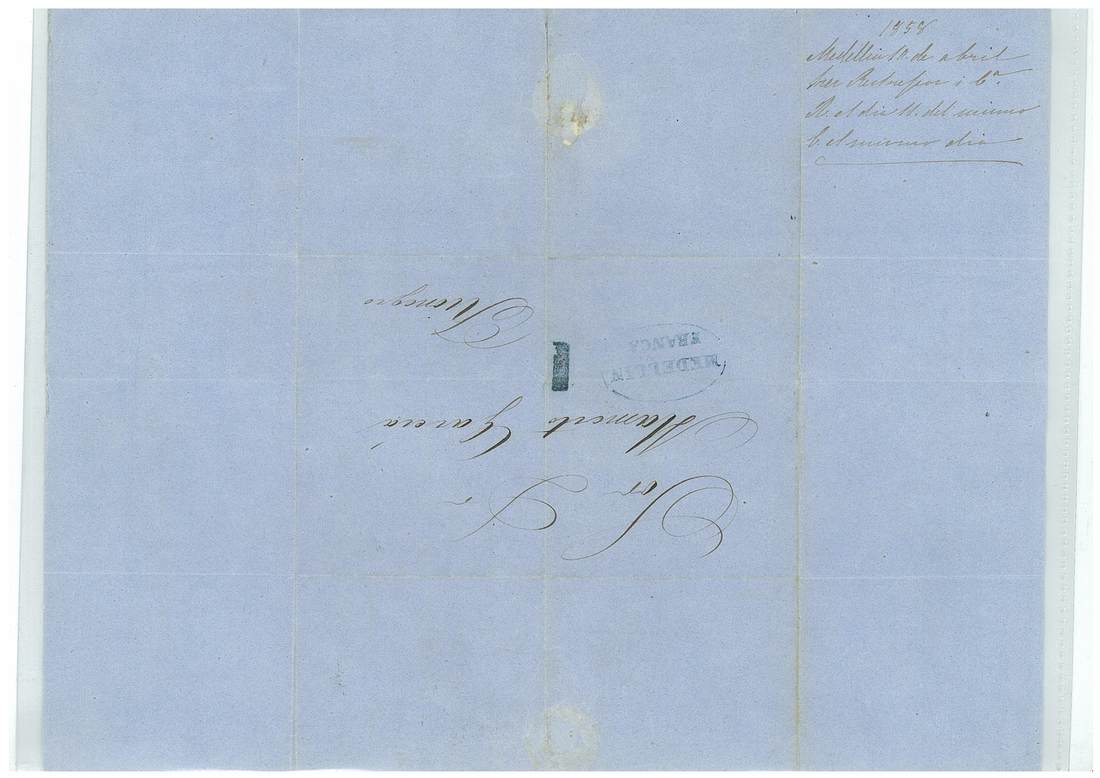 1858
Medellin 10. de abril
Restrepos i Ca.
R. el dia 11. del mismo
C. el mismo dia
Sor Dn
Mamerto García
Rionegro
MEDELLIN
FRANCA